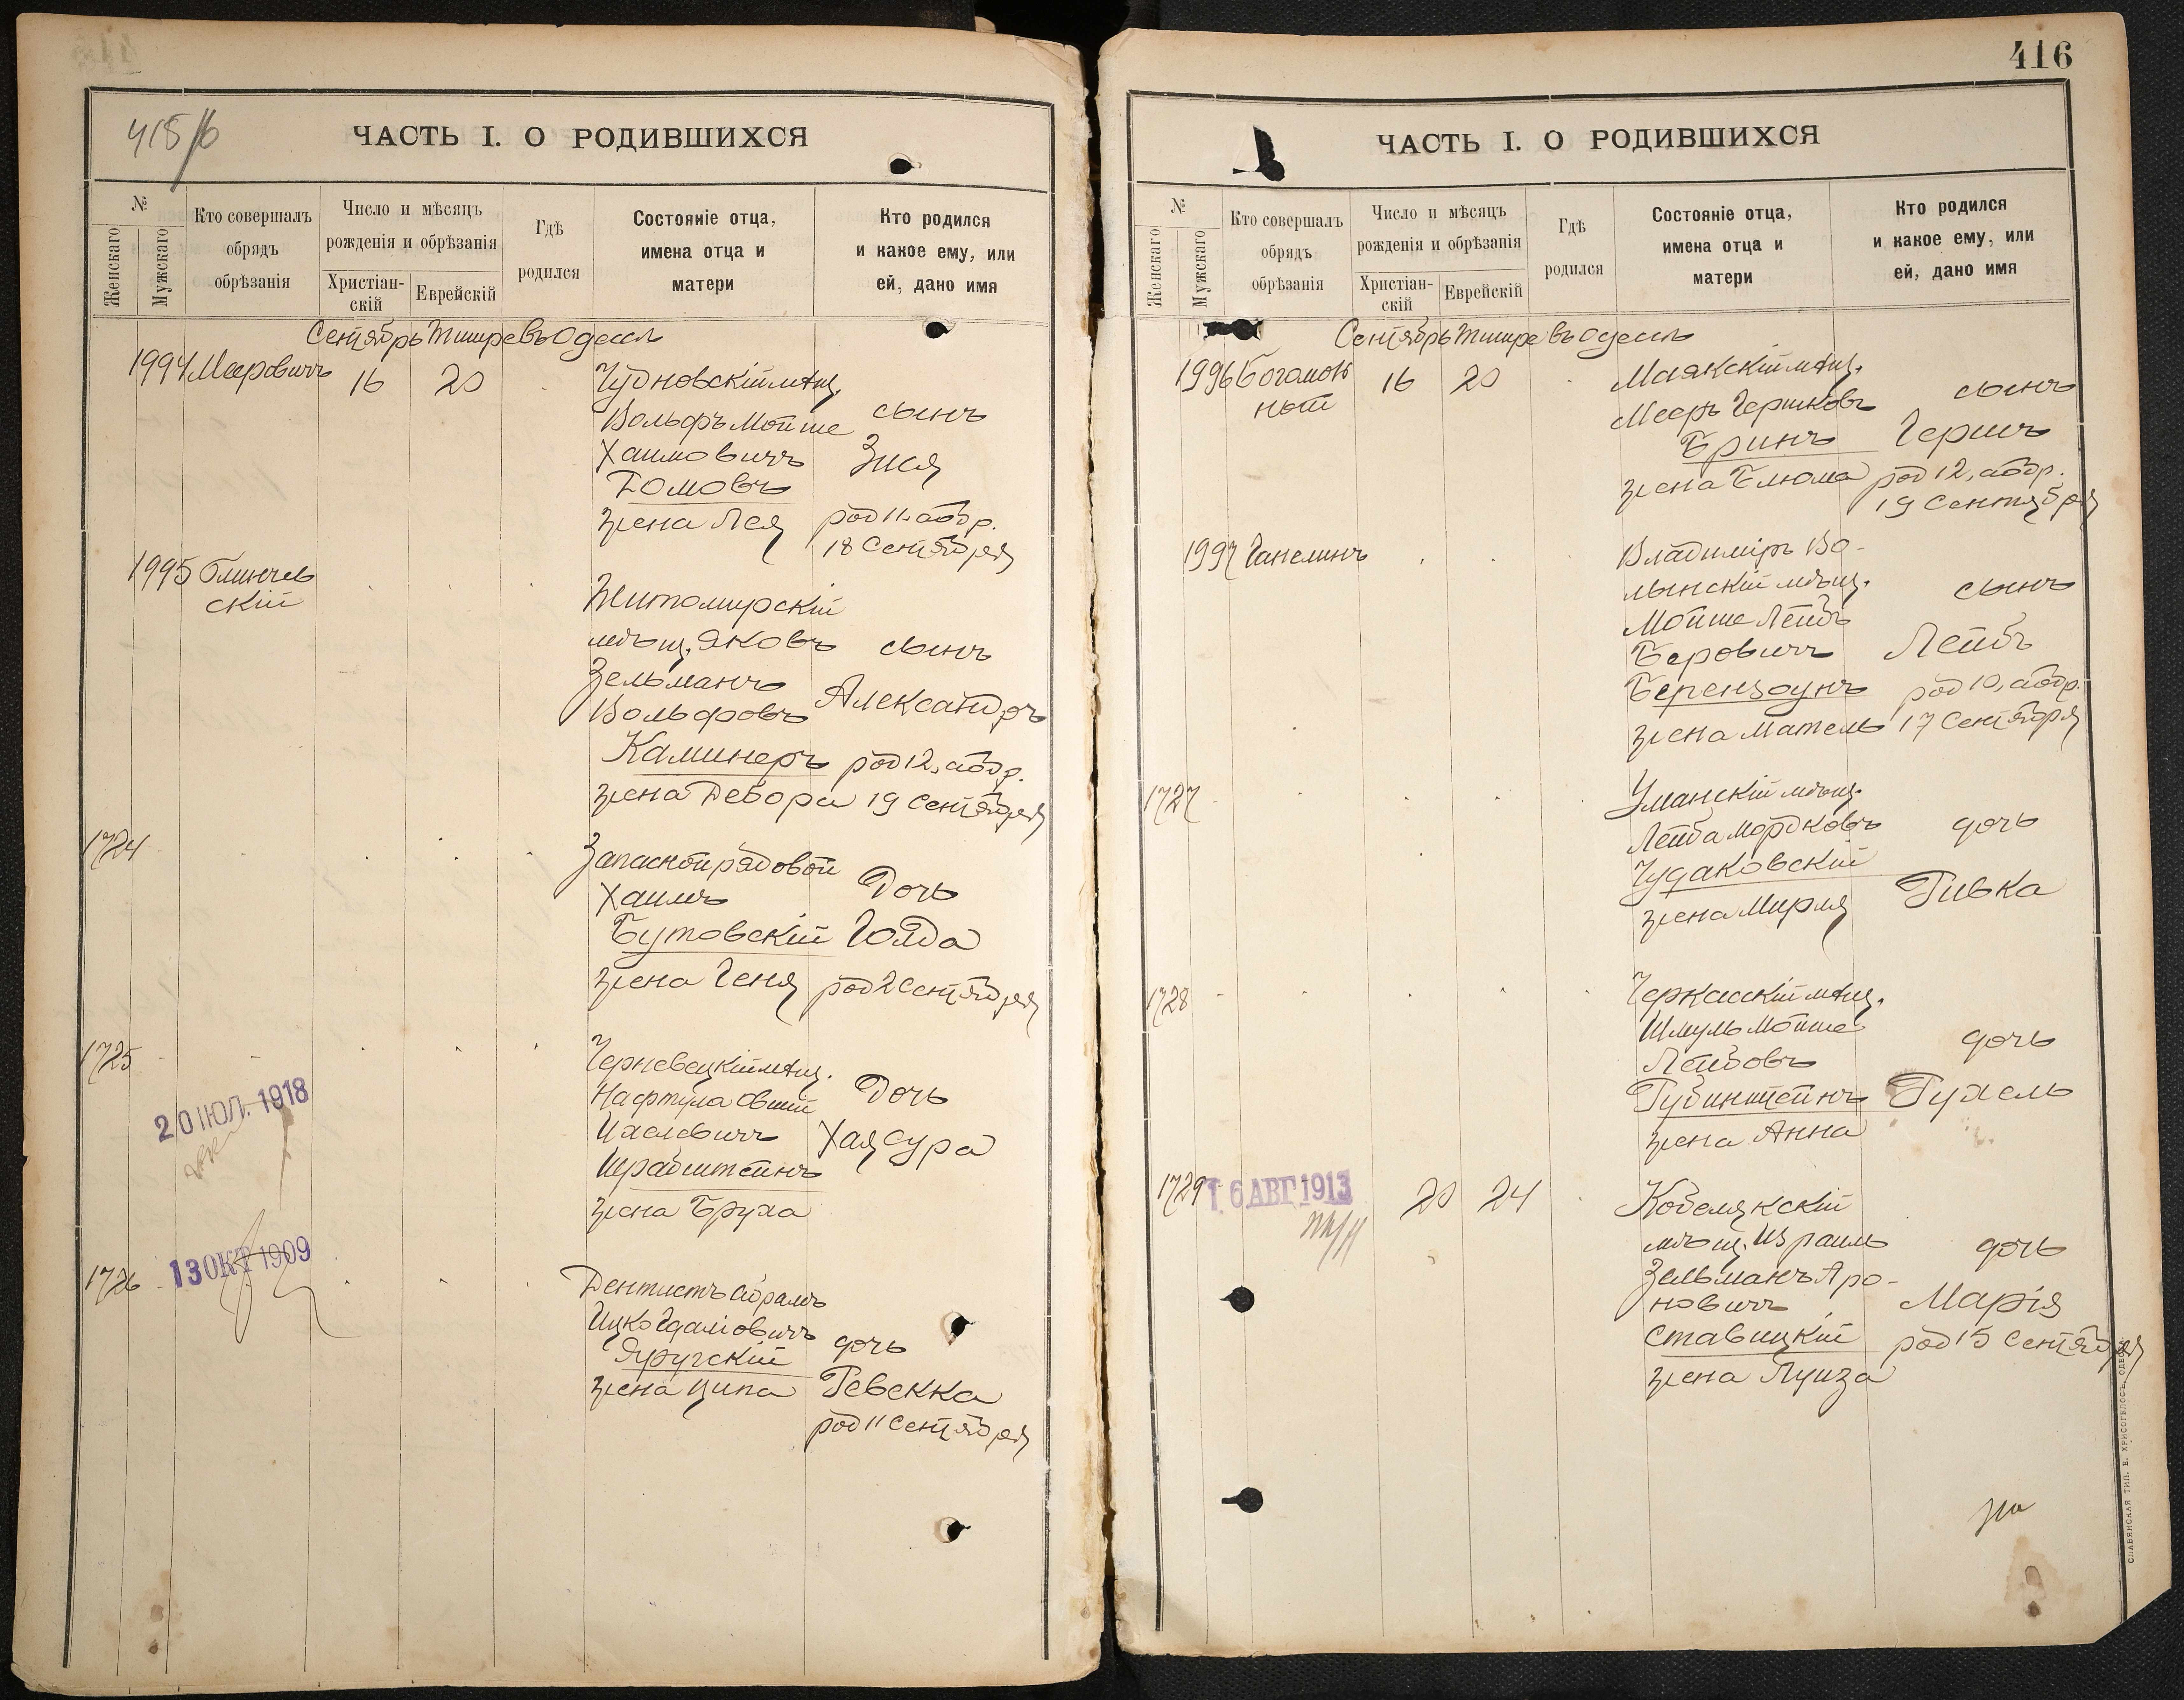 415/б
ЧАСТЬ I. О РОДИВШИХСЯ
№
Женскаго
Мужскаго
Кто совершалъ
обрядъ
обрѣзанія
Число и мѣсяцъ
рожденія и обрѣзанія
Христіан-
скій
Еврейскій
Гдѣ
родился
Состояніе отца,
имена отца и
матери
Кто родился
и какое ему, или
ей, дано имя
Сентябрь Тишре въ Одессѣ
1994 Мееровичъ 16 20
Чудновскій мѣщ.
Вольфъ Мойше
Хаимовичъ
Томовъ
жена Лея
сынъ
Зися
род 11, аобр.
18 Сентября
1995 Глинчев
скій
Житомирскій
мѣщ. Яковъ
Зельманъ
Вольфовъ
Каминеръ
жена Дебора
сынъ
Александръ
род 12, аобр.
19 Сентября
1724
Запасной рядовой
Хаимъ
Бутовскій
жена Геня
Дочь
Голда
род 2 Сентября
1725
Черневецкій мѣщ.
Нафтула Овший
Ихелевичъ
Шрайштейнъ
жена Бруха
Дочь
Хая Сура
20 ІЮЛ. 1918
1726
13 ОКТ 1909
Дентистъ Абрамъ
Ицко Гдаліовичъ
Яругскій
жена Ципа
дочь
Ревекка
род 11 Сентября
416
ЧАСТЬ I. О РОДИВШИХСЯ
№
Женскаго
Мужскаго
Кто совершалъ
обрядъ
обрѣзанія
Число и мѣсяцъ
рожденія и обрѣзанія
Христіан-
скій
Еврейскій
Гдѣ
родился
Состояніе отца,
имена отца и
матери
Кто родился
и какое ему, или
ей, дано имя
Сентябрь Тишре въ Одессѣ
1996 16 20
Маякскій мѣщ.
Мееръ Гершковъ
Бринъ
жена Блюма
сынъ
Гершъ
род 12, аобр.
19 Сентября
1997 Ганелинъ
Владимиръ Во-
лынскій мѣщ.
Мойше Лейбъ
Беровичъ
Беренzоунъ
жена Матель
сынъ
Лейбъ
род 10, аобр.
17 Сентября
1727
Уманскій мѣщ.
Лейба Мордковъ
Чудаковскій
жена Мирля
дочь
Ривка
1728
Черкасскій мѣщ.
Шмуль Мойше
Лейбовъ
Рубинштейнъ
жена Анна
дочь
Рухель
1729
16 АВГ 1913
20 24
Кобелякскій
мѣщ. Израиль
Зельманъ Аро-
новичъ
Ставицкій
жена Луиза
дочь
Марія
род 15 Сентября
СЛАВЯНСКАЯ ТИП. Е. ХРИСОГЕЛОСЪ, ОДЕССА